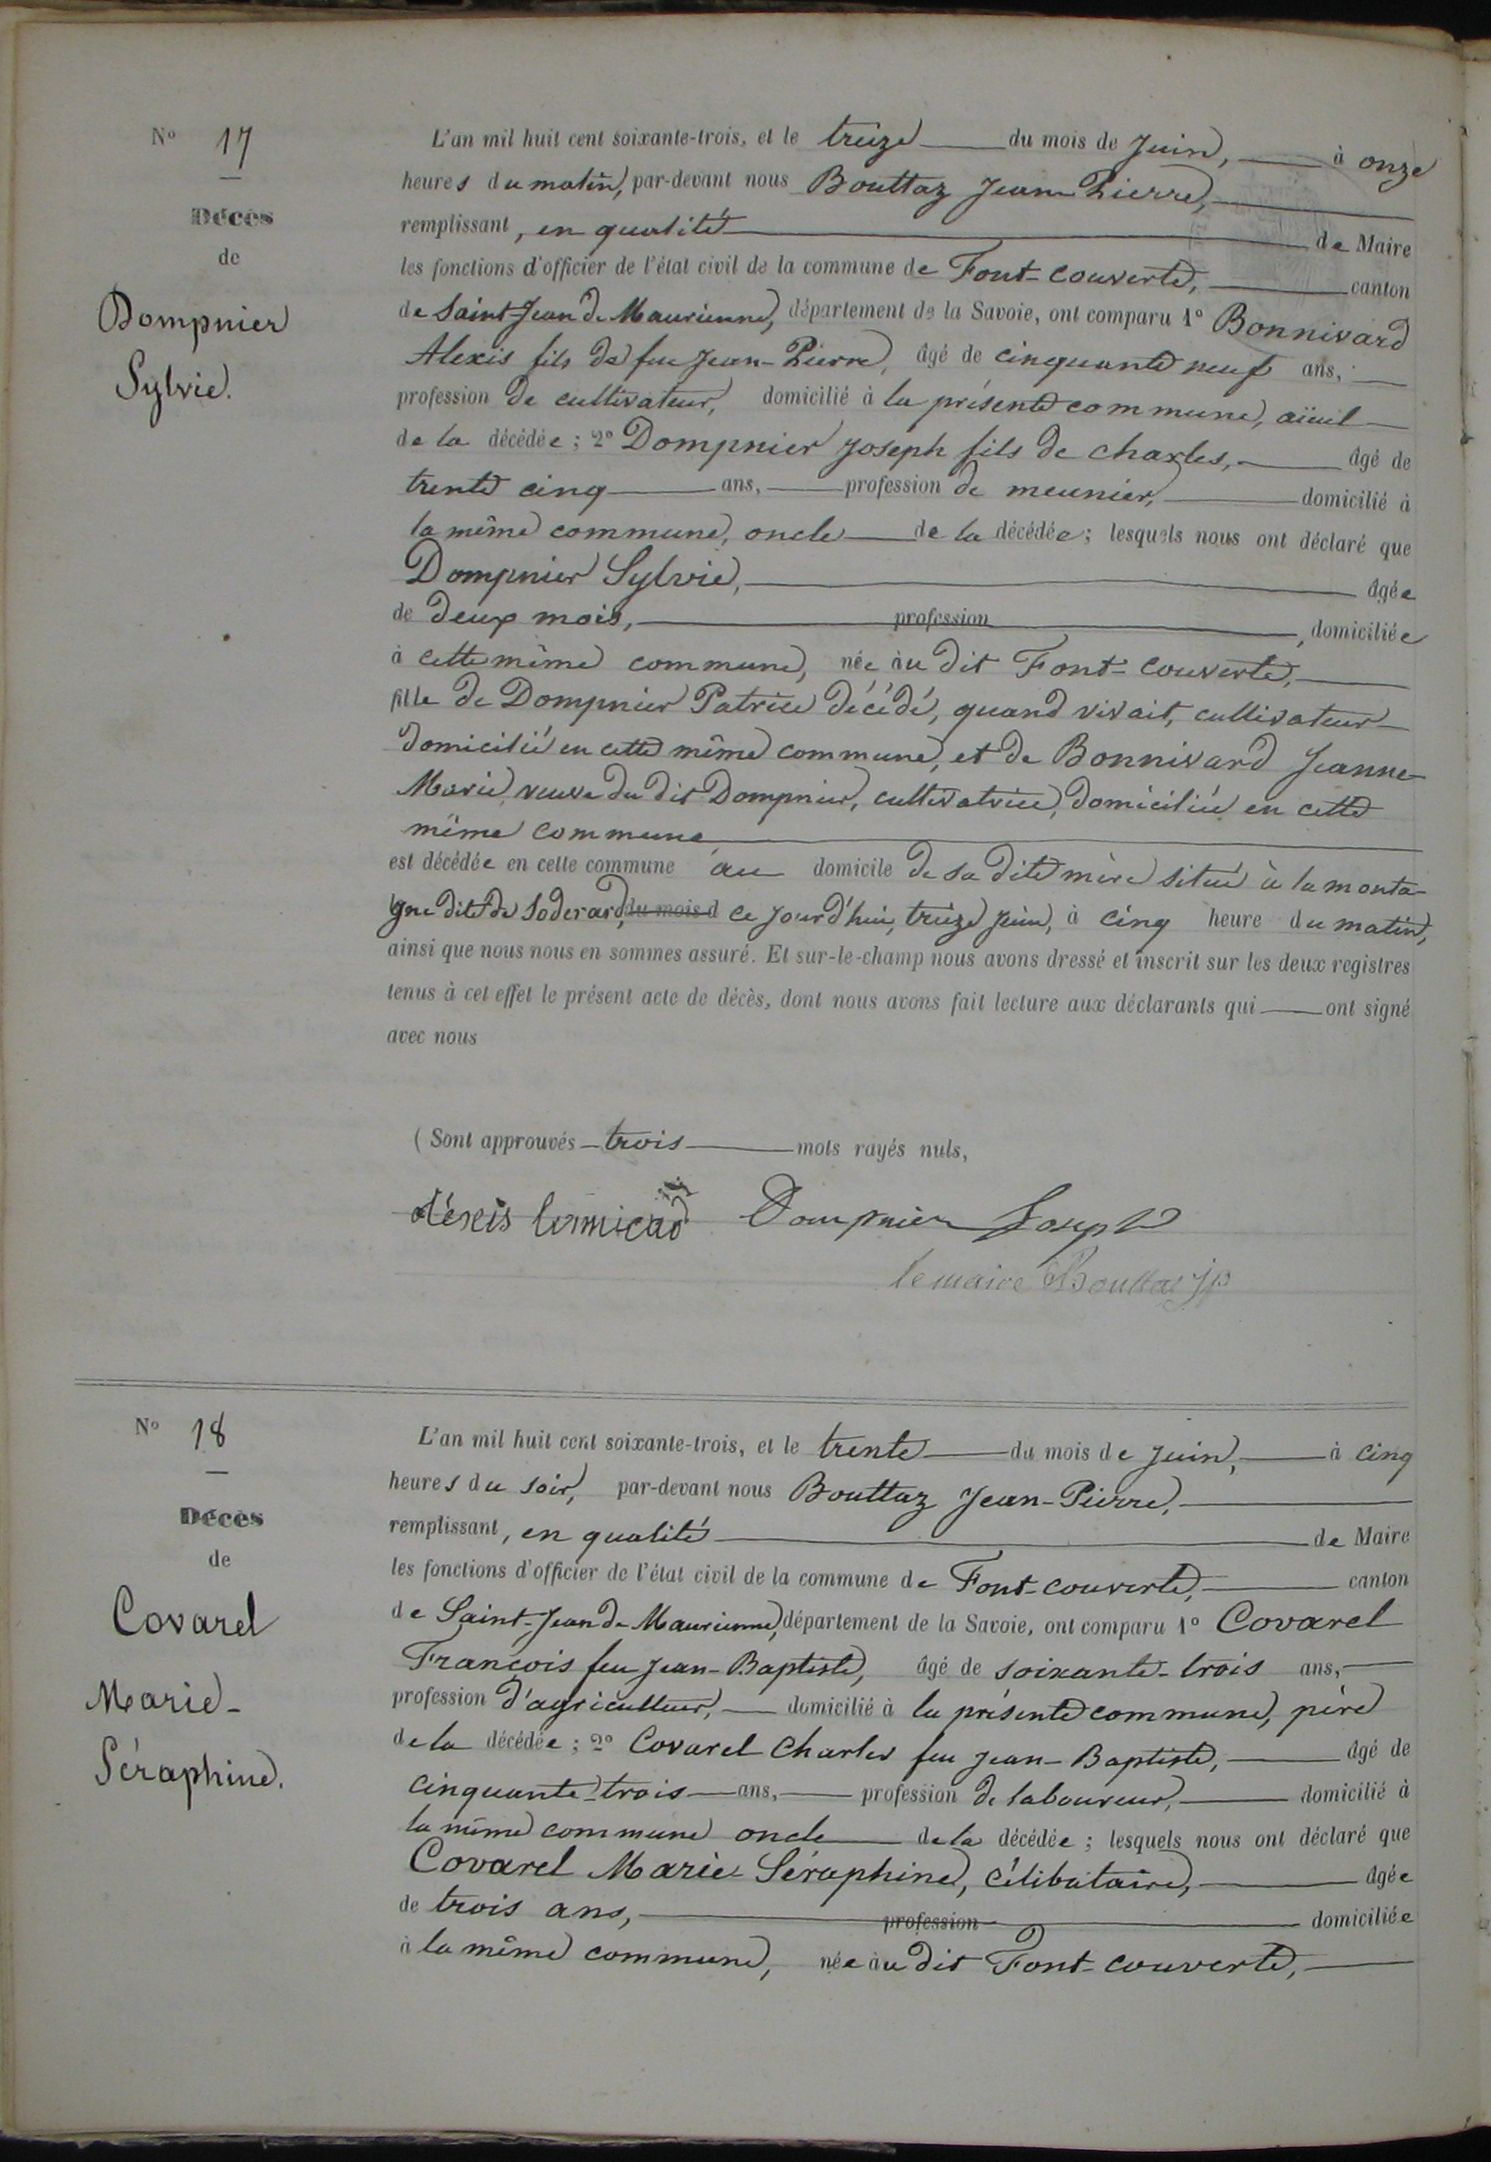 N° 17
Décès
de
Dompnier
Sylvie.
L'an mil huit cent soixante-trois, et le treize du mois de Juin, à onze
heures du matin, par-devant nous Bouttaz Jean-Pierre,
remplissant, en qualité de Maire
les fonctions d'officier de l'état civil de la commune de Font-couverte, canton
de Saint-Jean de Maurienne, département de la Savoie, ont comparu 1° Bonnivard
Alexis fils de feu Jean-Pierre, âgé de cinquante neuf ans,
profession de cultivateur, domicilié à la présente commune, aïeul
de la décédée ; 2° Dompnier Joseph fils de Charles, âgé de
trente cinq ans, profession de meunier, domicilié à
la même commune, oncle de la décédée ; lesquels nous ont déclaré que
Dompnier Sylvie, âgée
de deux mois, profession, domiciliée
à cette même commune, née au dit Font-couverte,
fille de Dompnier Patrice décédé, quand vivait, cultivateur
domicilié en cette même commune, et de Bonnivard Jeanne-
Marie, veuve du dit Dompnier, cultivatrice, domiciliée en cette
même commune,
est décédée en cette commune au domicile de sa dite mère situé à la monta-
gne dite de Soderard, du mois d ce jourd'hui, treize juin, à cinq heure du matin,
ainsi que nous nous en sommes assuré. Et sur-le-champ nous avons dressé et inscrit sur les deux registres
tenus à cet effet le présent acte de décès, dont nous avons fait lecture aux déclarants qui ont signé
avec nous
(Sont approuvés trois mots rayés nuls,
aléxis Dompnier Joseph
le maire Bouttaz jp
N° 18
Décès
de
Covarel
Marie-
Séraphine.
L'an mil huit cent soixante-trois, et le trente du mois de Juin, à cinq
heures du soir, par-devant nous Bouttaz Jean-Pierre,
remplissant, en qualité de Maire
les fonctions d'officier de l'état civil de la commune de Font-couverte, canton
de Saint-Jean de Maurienne, département de la Savoie, ont comparu 1° Covarel
François feu Jean-Baptiste, âgé de soixante-trois ans,
profession d'agriculteur, domicilié à la présente commune, père
de la décédée ; 2° Covarel Charles feu Jean-Baptiste, âgé de
cinquante-trois ans, profession de laboureur, domicilié à
la même commune oncle de la décédée ; lesquels nous ont déclaré que
Covarel Marie Séraphine, célibataire, âgée
de trois ans, profession domiciliée
à la même commune, née au dit Font-couverte,